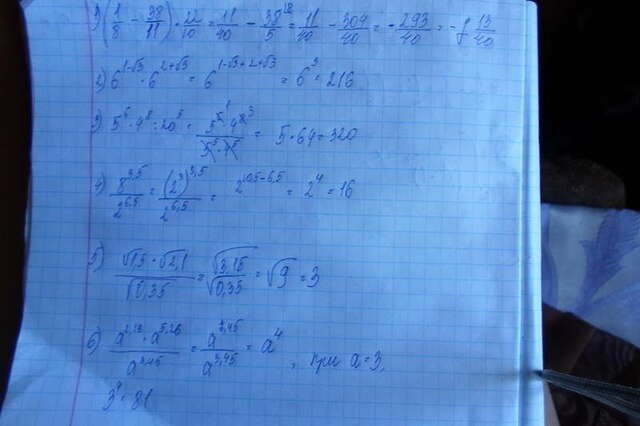 1) (1/8 - 38/11) · 22/10 = 11/40 - 38/5 = 11/40 - 304/40 = -293/40 = -7 13/40
2) 6^(1-√3) · 6^(2+√3) = 6^(1-√3+2+√3) = 6^3 = 216
3) 5^6 · 4^8 : 20^5 = = 5 · 64 = 320
4) 8^3,5 / 2^6,5 = (2^3)^3,5 / 2^6,5 = 2^(10,5-6,5) = 2^4 = 16
5) √1,5 · √2,1 / √0,35 = √3,15 / √0,35 = √9 = 3
6) = a^4, при a=3,
3^4 = 81